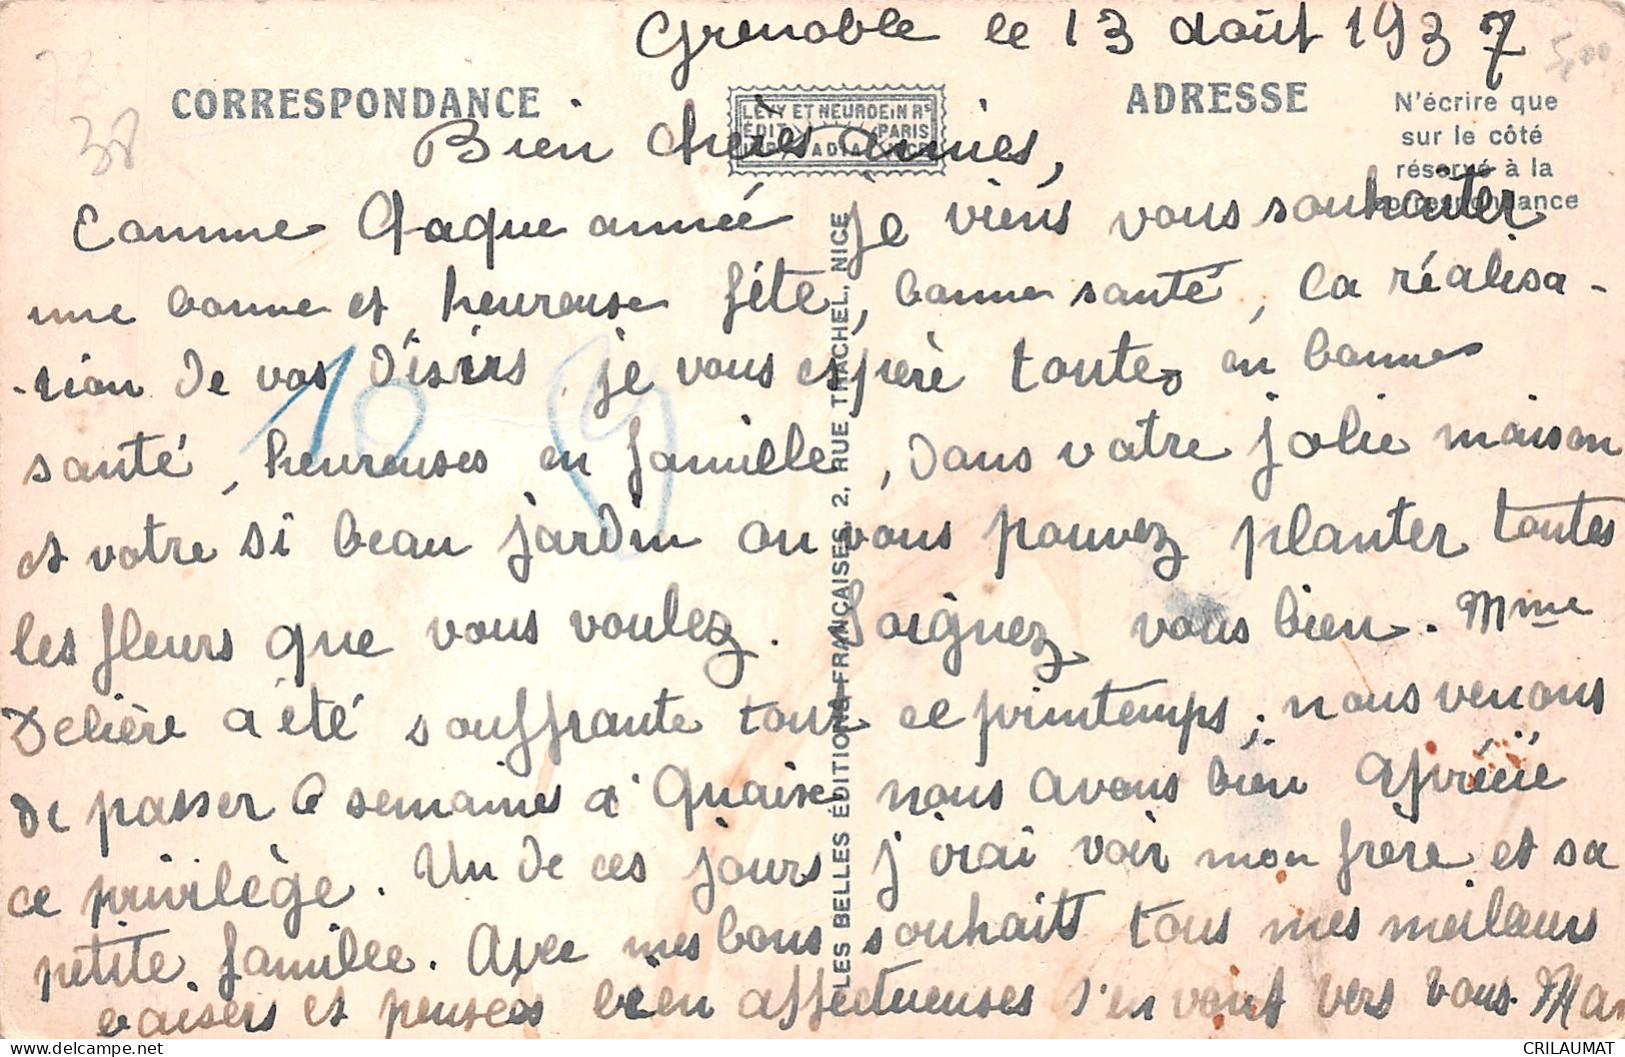 Grenoble le 13 août 1937
5,00
38
CORRESPONDANCE
ADRESSE
N'écrire que
sur le côté
réservé à la
correspondance
LÉVY ET NEURDEIN RS
ÉDIT PARIS
Bien chères amies,
Comme chaque année je viens vous souhaiter
une bonne et heureuse fête, bonne santé, la réalisa-
-tion de vos désirs. je vous espère toutes en bonne
santé, heureuses en famille, dans votre jolie maison
et votre si beau jardin ou vous pouvez planter toutes
les fleurs que vous voulez. Soignez vous bien. Mme
Delière a été souffrante tout ce printemps, nous venons
de passer 6 semaines à Quaix, nous avons bien aprécié
ce privilège. Un de ces jours j'irai voir mon frère et sa
petite famille. Avec mes bons souhaits tous mes meilleurs
baisers et pensées bien affectueuses s'en vont vers vous. Mar
LES BELLES ÉDITIONS FRANÇAISES, 2, RUE TRACHEL, NICE
10
CRILAUMAT